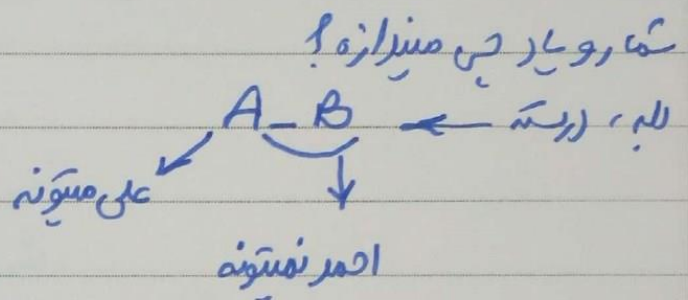 شما رو یاد چی میندازه؟
بله، درسته ← A - B
علی میتونه
احمد نمیتونه